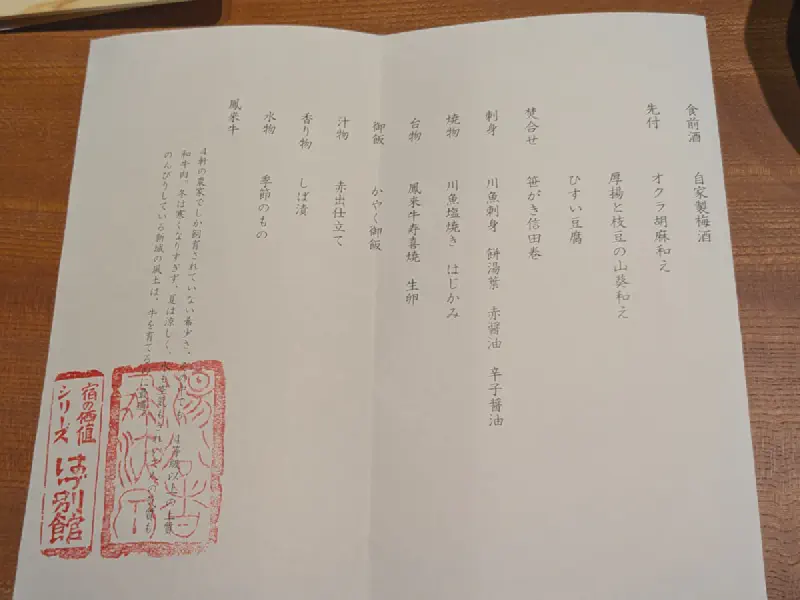 食前酒　自家製梅酒
先付　オクラ胡麻和え
厚揚と枝豆の山葵和え
ひすい豆腐
焚合せ　笹がき信田巻
刺身　川魚刺身　餅湯葉　赤醤油　辛子醤油
焼物　川魚塩焼き　はじかみ
台物　鳳来牛寿喜焼　生卵
御飯　かやく御飯
汁物　赤出仕立て
香り物　しば漬
水物　季節のもの
鳳来牛
4軒の農家でしか飼育されていない希少さ、 4等級以上の上質
和牛肉。冬は寒くなりすぎず、夏は涼しく、
のんびりしている新城の風土は、牛を育てる
宿の価値
シリーズ
はづ別館